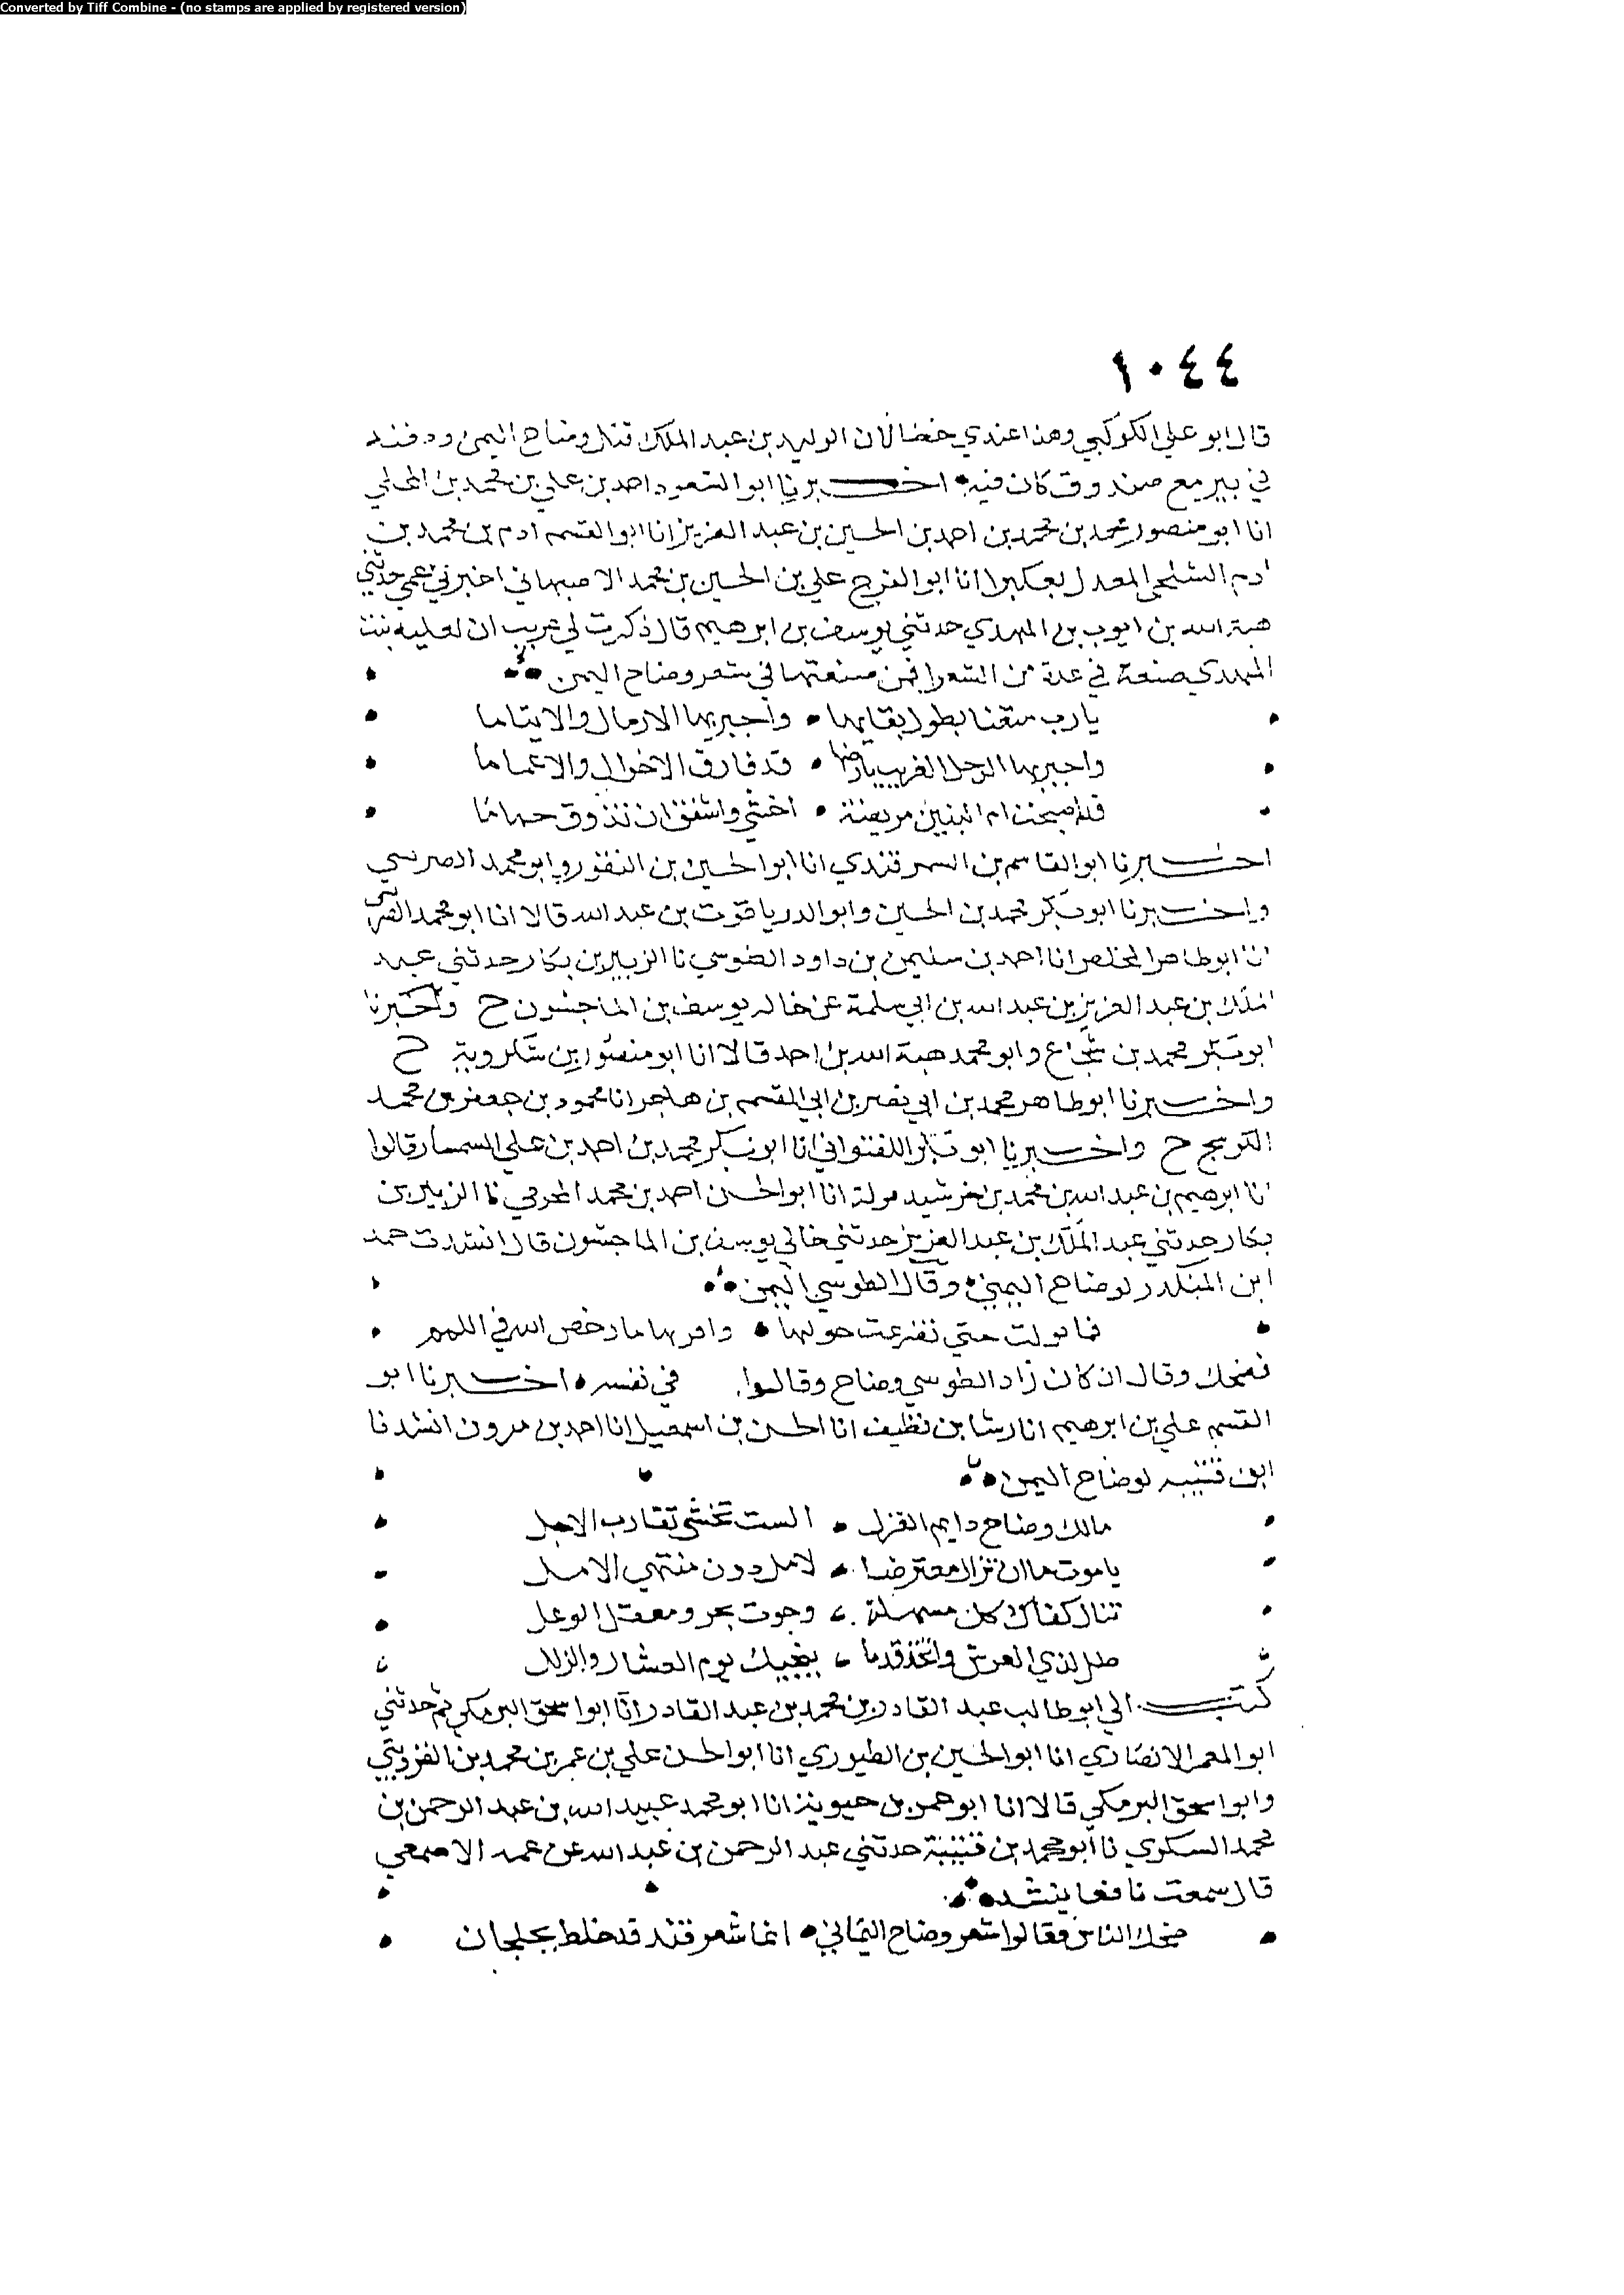 Converted by Tiff Combine - (no stamps are applied by registered version)
١٠٤٤
قال ابو علي الكوكبي وهذا عندي خطا لان الوليد بن عبد الملك قتل وضاح اليمن ودفنه
في بير مع صندوق كان فيه • اخبرنا ابو السعود احمد بن علي بن محمد بن المجلي
انا ابو منصور محمد بن محمد بن احمد بن الحسين بن عبد العزيز انا ابو القسم ادم بن محمد بن
ادم السلحي المعدل بعكبرا انا ابو الفرج علي بن الحسين بن محمد الاصبهاني اخبرني عمي حدثني
هبة الله بن ايوب بن المهدي حدثني يوسف بن ابرهيم قال ذكرت لي عريب ان لعليه بنت
المهدي صنعة في عدة من الشعرا فمن صنعتها في شعر وضاح اليمن
يا رب متعنا بطول بقايها • واجبر بها الارمال والايتاما
واجبر بها الرجل الغريب بارضها • قد فارق الاخوال والاعماما
قد اصبحت ام البنين مريضة • اخشى واشفق ان تذوق حماما
اخبرنا ابو القاسم بن السمرقندي انا ابو الحسين بن النقور وابو محمد الصريفيني
واخبرنا ابو بكر محمد بن الحسين وابو الدر ياقوت بن عبد الله قالا انا ابو محمد الصريفيني
انا ابو طاهر المخلص انا احمد بن سليمن بن داود الطوسي نا الزبير بن بكار حدثني عبد
الملك بن عبد العزيز بن عبد الله بن ابي سلمة عن خاله يوسف بن الماجشون ح واخبرنا
ابو بكر محمد بن شجاع وابو محمد هبة الله بن احمد قالا انا ابو منصور بن شكرويه ح
واخبرنا ابو طاهر محمد بن ابي نصر بن ابي القسم بن هاجر انا محمود بن جعفر بن محمد
الكوسج ح واخبرنا ابو بكر اللفتواني انا ابو بكر محمد بن احمد بن علي السمسار قالوا
انا ابرهيم بن عبد الله بن محمد بن خرشيد قوله انا ابو الحسن احمد بن محمد المخرمي نا الزبير بن
بكار حدثني عبد الملك بن عبد العزيز حدثني خالي يوسف بن الماجشون قال انشدت محمد
ابن المنكدر لوضاح اليمني • وقال الطوسي اليمن
فما نولت حتى تضرعت حولها • واقراتها ما رخص الله في اللمم
فضحك وقال ان كان زاد الطوسي وضاح وقالوا في نفسه • اخبرنا ابو
القسم علي بن ابرهيم انا رشا بن نظيف انا الحسن بن اسمعيل انا احمد بن مرون انشدنا
ابن قتيبه لوضاح اليمن
مالك وضاح دايم الغزل • الست تخشى تقارب الاجل
يا موت ما ان تزال معترضا • لامل دون منتهى الامل
تنال كفاك كل مسهلة • وحوت بحر ومعقل الوعل
صل لذي العرش واتخذ قدما • ينجيك يوم العثار والزلل
كتب الي ابو طالب عبد القادر بن محمد بن عبد القادر انا ابو اسحق البرمكي ثم حدثني
ابو المعمر الانصاري انا ابو الحسين بن الطيوري انا ابو الحسن علي بن عمر بن محمد بن القزويني
وابو اسحق البرمكي قالا انا ابو عمر بن حيويه انا ابو محمد عبيد الله بن عبد الرحمن بن
محمد السكري نا ابو محمد بن قتيبة حدثني عبد الرحمن بن عبد الله عن عمه الاصمعي
قال سمعت نافعا ينشد
ضحك الناس فقالوا شعر وضاح اليماني • انما شعر قند قد خلط بجلجان